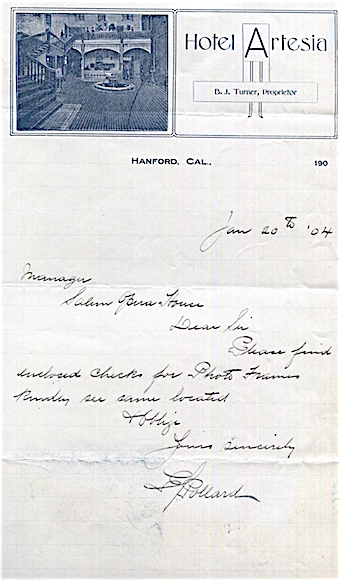 Hotel Artesia
B. J. Turner, Proprietor
Hanford, Cal., 190
Jan 20th '04
Manager
Salem Opera House
Dear Sir
Please find
enclosed checks for Photo Frames
Kindly see same located
& Oblige
Yours sincerely
Pollard